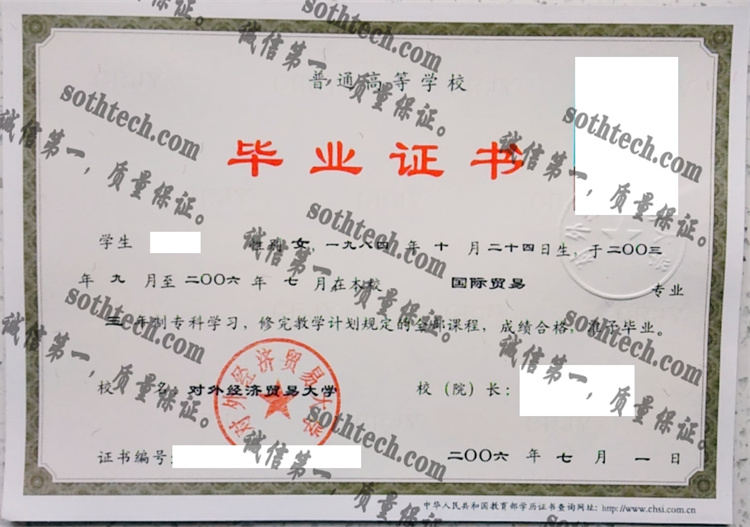 普通高等学校
毕业证书
学生 性别 女,一九八四 年 十 月 二十四日生,于 二〇〇三
年 九 月至 二〇〇六 年 七 月在本校 国际贸易 专业
三 年制专科学习,修完教学计划规定的全部课程,成绩合格,准予毕业。
校 名: 对外经济贸易大学 校(院)长:
对外经济贸易大学
证书编号: 二〇〇六 年 七 月 一 日
中华人民共和国教育部学历证书查询网址: http://www.chsi.com.cn
sothtech.com
诚信第一,质量保证。
sothtech.com
诚信第一,质量保证。
sothtech.com
诚信第一,质量保证。
sothtech.com
诚信第一,质量保证。
sothtech.com
诚信第一,质量保证。
sothtech.com
诚信第一,质量保证。
sothtech.com
诚信第一,质量保证。
sothtech.com
诚信第一,质量保证。